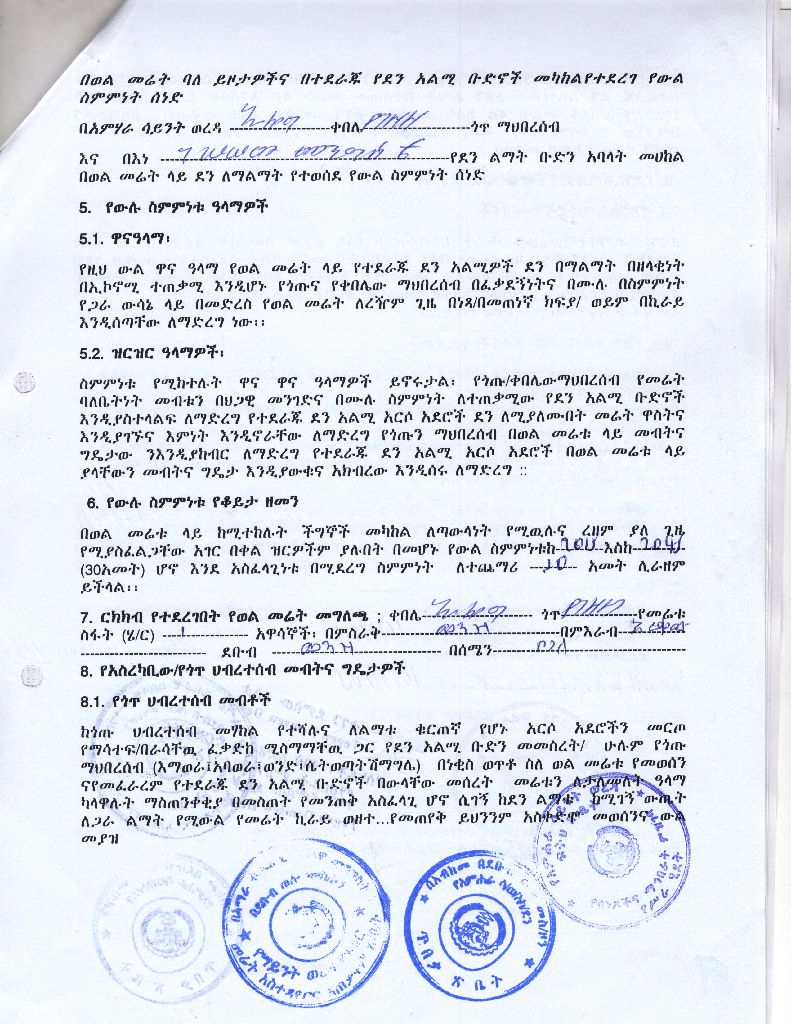 በወል መሬት ባለ ይዞታዎችና በተደራጁ የደን አልሚ ቡድኖች መካከልየተደረገ የውል
ስምምነት ሰነድ
በአምሃራ ሳይንት ወረዳ ቀበሌ ጎጥ ማህበረሰብ
እና በእነ የደን ልማት ቡድን አባላት መሀከል
በወል መሬት ላይ ደን ለማልማት የተወሰደ የውል ስምምነት ሰነድ
5. የውሉ ስምምነቱ ዓላማዎች
5.1. ዋናዓላማ፡
የዚህ ውል ዋና ዓላማ የወል መሬት ላይ የተደራጁ ደን አልሚዎች ደን በማልማት በዘላቂነት
በኢኮኖሚ ተጠቃሚ እንዲሆኑ የጎጡና የቀበሌው ማህበረሰብ በፈቃደኝነትና በሙሉ በስምምነት
የጋራ ውሳኔ ላይ በመድረስ የወል መሬት ለረዥም ጊዜ በነጻ/በመጠነኛ ክፍያ/ ወይም በኪራይ
እንዲሰጣቸው ለማድረግ ነው፡፡
5.2. ዝርዝር ዓላማዎች፡
ስምምነቱ የሚከተሉት ዋና ዋና ዓላማዎች ይኖሩታል፡ የጎጡ/ቀበሌውማህበረሰብ የመሬት
ባለቤትነት መብቱን በህጋዊ መንገድና በሙሉ ስምምነት ለተጠቃሚው የደን አልሚ ቡድኖች
እንዲያስተላልፍ ለማድረግ የተደራጁ ደን አልሚ አርሶ አደሮች ደን ለሚያለሙበት መሬት ዋስትና
እንዲያገኙና እምነት እንዲኖራቸው ለማድረግ የጎጡን ማህበረሰብ በወል መሬቱ ላይ መብትና
ግዴታው ንእንዲያከብር ለማድረግ የተደራጁ ደን አልሚ አርሶ አደሮች በወል መሬቱ ላይ
ያላቸውን መብትና ግዴታ እንዲያውቁና አክብረው እንዲሰሩ ለማድረግ ::
6. የውሉ ስምምነቱ የቆይታ ዘመን
በወል መሬቱ ላይ ከሚተከሉት ችግኞች መካከል ለጣውላነት የሚዉሉና ረዘም ያለ ጊዜ
የሚያስፈልጋቸው አገር በቀል ዝርዎችም ያሉበት በመሆኑ የውል ስምምነቱከ 2011 እስከ 2041
(30አመት) ሆኖ እንደ አስፈላጊነቱ በሚደረግ ስምምነት ለተጨማሪ 10 አመት ሊራዘም
ይችላል፡፡
7. ርክክብ የተደረገበት የወል መሬት መግለጫ ; ቀበሌ ጎጥ የመሬቱ
ስፋት (ሄ/ር) 1 አዋሳኞች፡ በምስራቅ ወንዝ በምእራብ
ደቡብ ወንዝ በሰሜን ገደል
8. የአስረካቢው/የጎጥ ህብረተሰብ መብትና ግዴታዎች
8.1. የጎጥ ህብረተሰብ መብቶች
ከጎጡ ህብረተሰብ መሃከል የተሻሉና ለልማቱ ቁርጠኛ የሆኑ አርሶ አደሮችን መርጦ
የማሳተፍ/በራሳቸዉ ፈቃድከ ሚስማማቸዉ ጋር የደን አልሚ ቡድን መመስረት/ ሁሉም የጎጡ
ማህበረሰብ (እማወራ፤አባወራ፤ወንድ፡ሴትወጣትሽማግሌ) በነቂስ ወጥቶ ስለ ወል መሬቱ የመወሰን
ናየመፈራረም የተደራጁ ደን አልሚ ቡድኖች በውላቸው መሰረት መሬቱን ለታለመለት ዓላማ
ካላዋሉት ማስጠንቀቂያ በመስጠት የመንጠቅ አስፈላጊ ሆኖ ሲገኝ ከደን ልማቱ ከሚገኝ ውጤት
ለጋራ ልማት የሚውል የመሬት ኪራይ ወዘተ...የመጠየቅ ይህንንም አስቀድሞ መወሰንና ውል
መያዝ